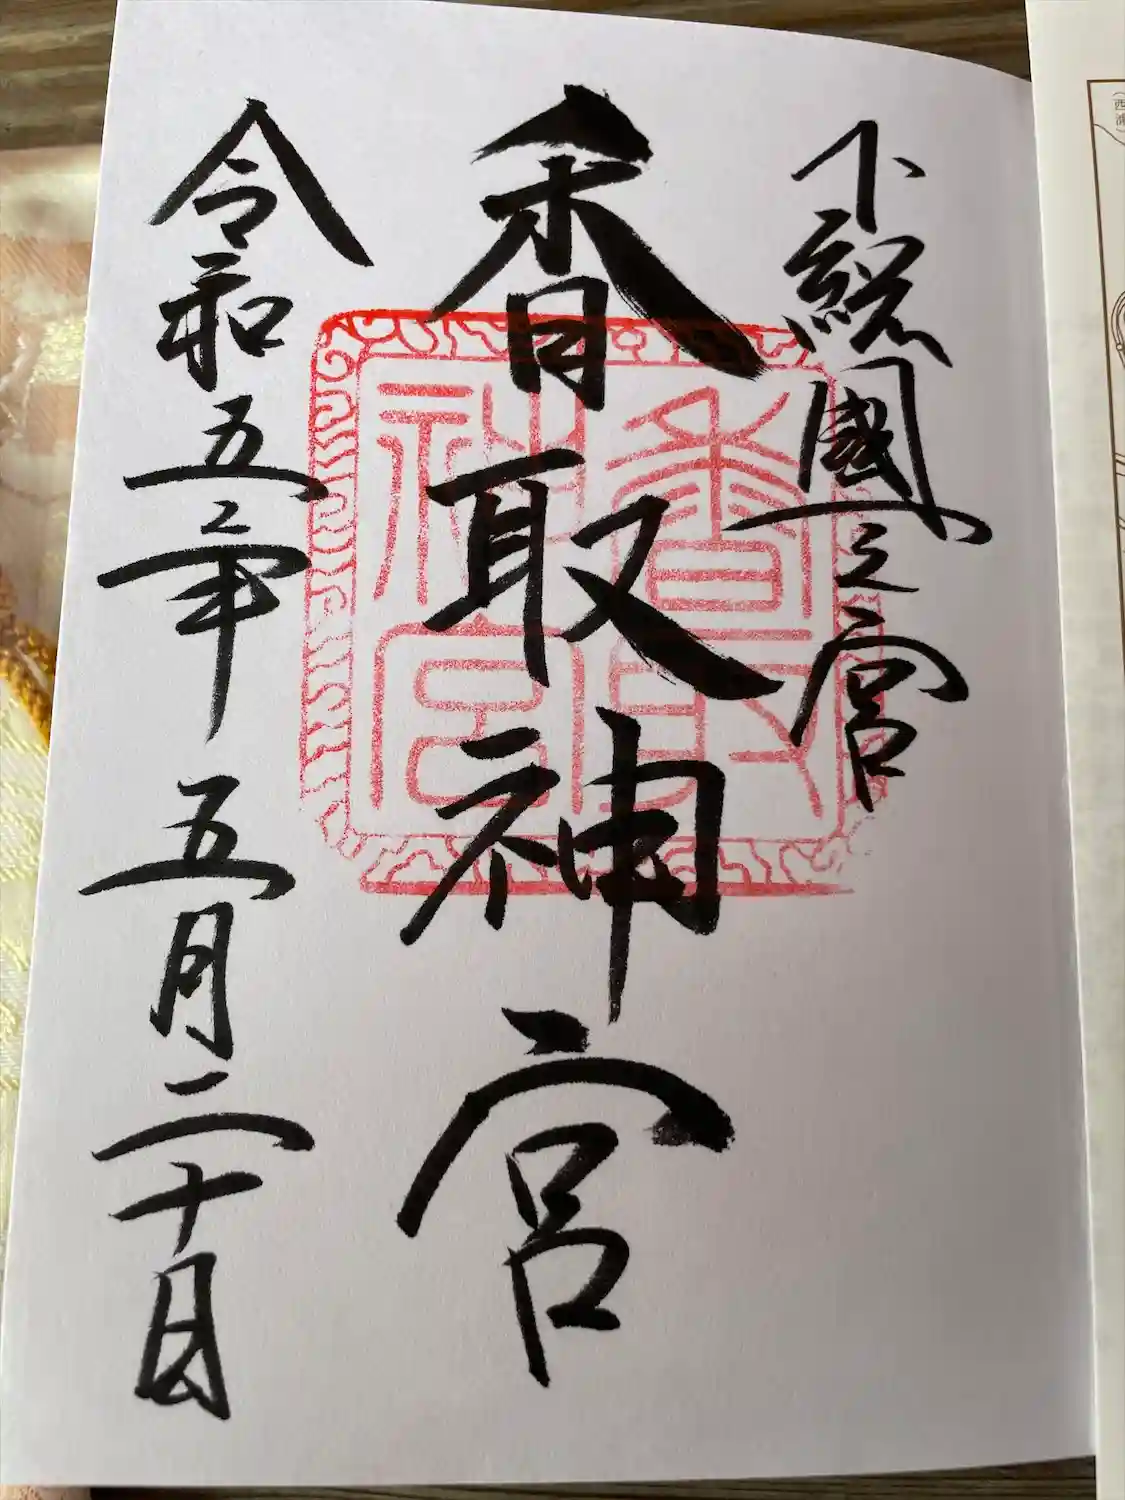 下総國一之宮
香取神宮
香取
神宮
令和五年五月二十日